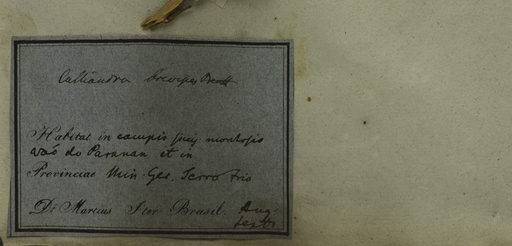 Calliandra brevipes Benth
Habitat in campis montosis
vaõ do Paranan et in
Provinciae Min. Ger. Serro Frio
Dr Martius Iter Brasil. Aug.